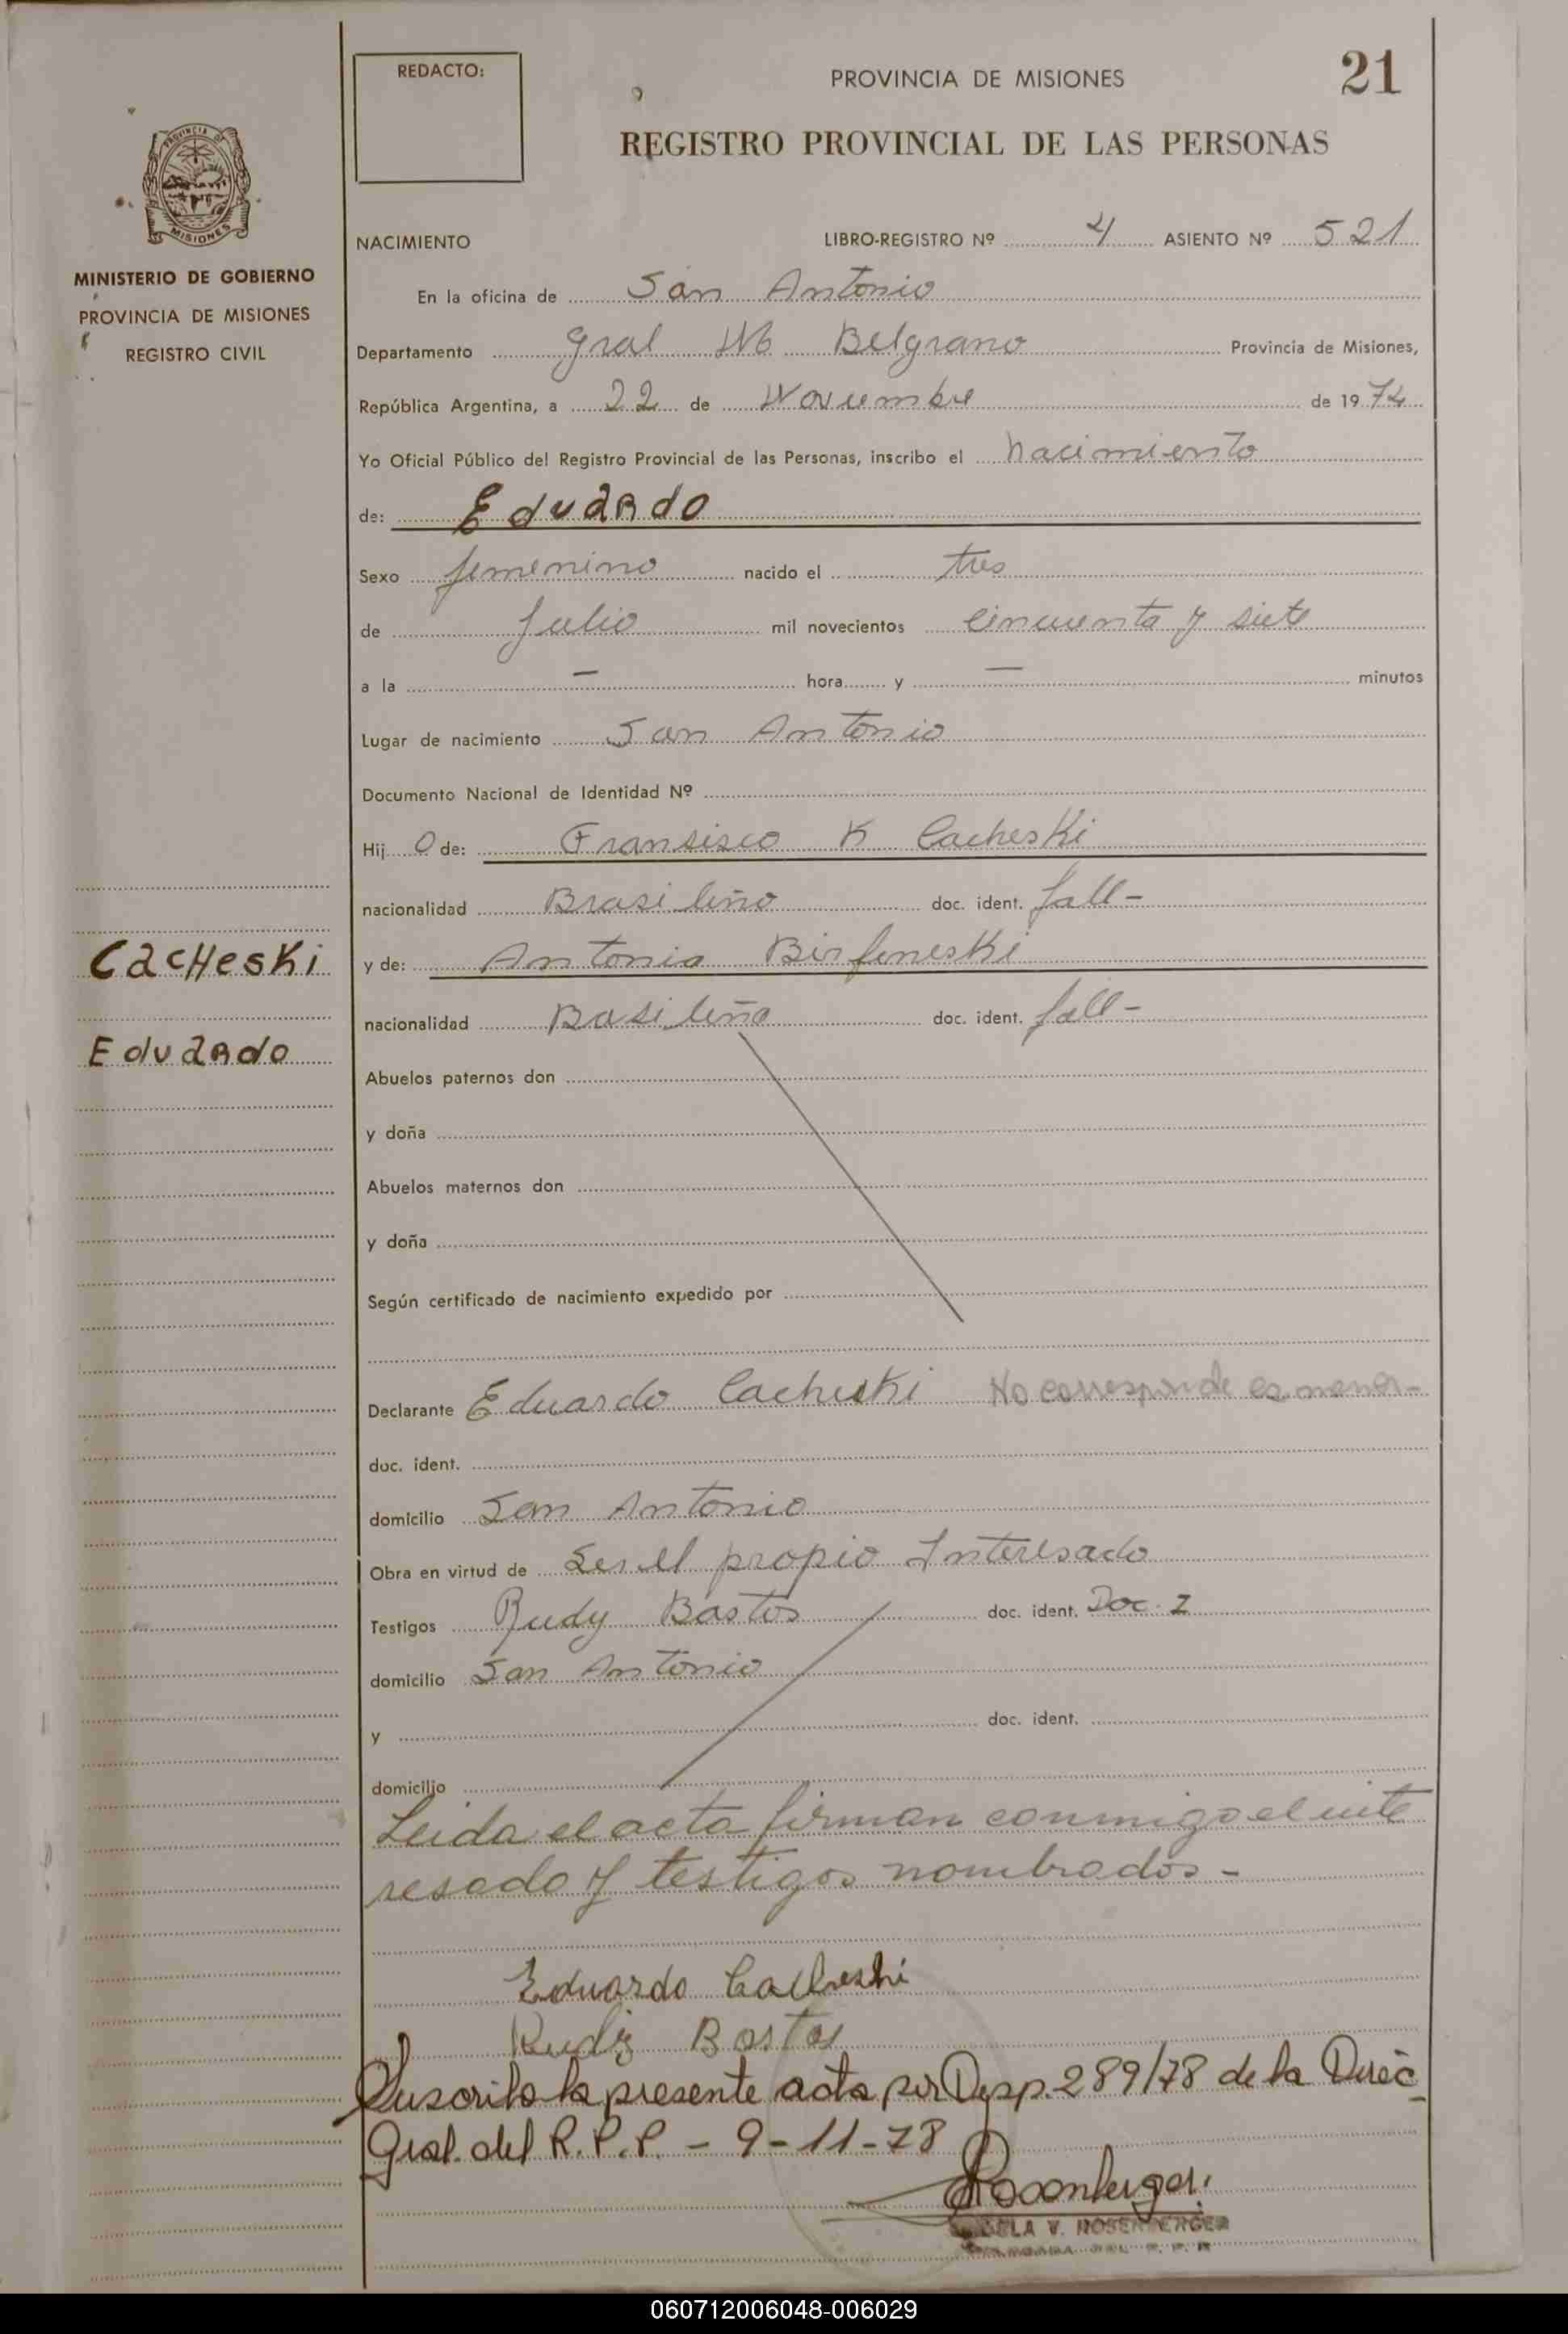 REDACTO:
PROVINCIA DE MISIONES
21
REGISTRO PROVINCIAL DE LAS PERSONAS
PROVINCIA DE
MISIONES
MINISTERIO DE GOBIERNO
PROVINCIA DE MISIONES
REGISTRO CIVIL
NACIMIENTO LIBRO-REGISTRO Nº 4 ASIENTO Nº 521
En la oficina de San Antonio
Departamento Gral M Belgrano Provincia de Misiones,
República Argentina, a 22 de Noviembre de 1974
Yo Oficial Público del Registro Provincial de las Personas, inscribo el Nacimiento
de: Eduardo
Sexo femenino nacido el tres
de Julio mil novecientos Cincuenta y siete
a la — hora y — minutos
Lugar de nacimiento San Antonio
Documento Nacional de Identidad Nº
Hij o de: Fransisco K Cacheski
nacionalidad Brasileño doc. ident. fall-
Cacheski
y de: Antonia Birfeneski
nacionalidad Basileña doc. ident. fall-
Eduardo
Abuelos paternos don
y doña
Abuelos maternos don
y doña
Según certificado de nacimiento expedido por
Declarante Eduardo Cacheski No corresponde es menor-
doc. ident.
domicilio San Antonio
Obra en virtud de Ser el propio Interesado
Testigos Rudy Bastos doc. ident. Doc. Z
domicilio San Antonio
y doc. ident.
domicilio
Leida el acta firman conmigo el inte
resado y testigos nombrados -
Eduardo Cacheski
Rudiz Bastos
Suscrito la presente acta por Disp. 289/78 de la Direc
Gral. del R.P.P. - 9-11-78
Rosenberger
V. ROSENBERGER
060712006048-006029